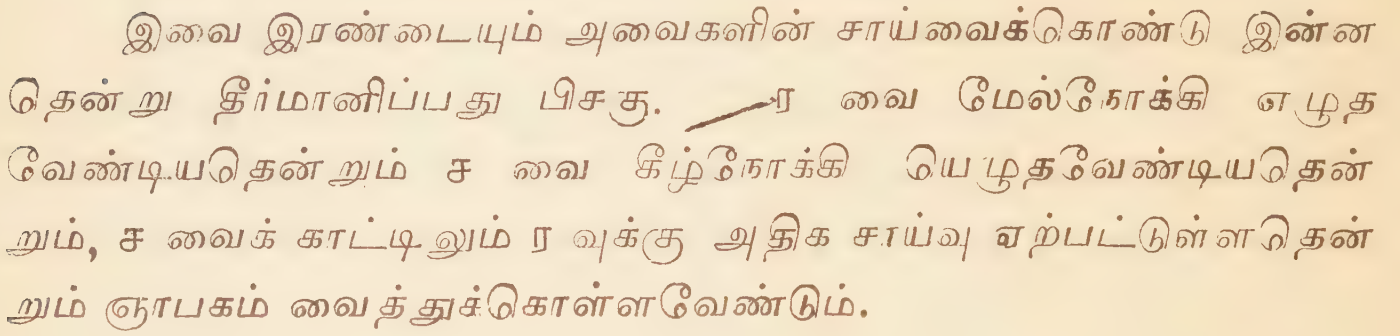 இவை இரண்டையும் அவைகளின் சாய்வைக்கொண்டு இன்ன
தென்று தீர்மானிப்பது பிசகு. ர வை மேல்நோக்கி எழுத
வேண்டியதென்றும் ச வை கீழ்நோக்கி யெழுதவேண்டியதென்
றும், ச வைக் காட்டிலும் ர வுக்கு அதிக சாய்வு ஏற்பட்டுள்ளதென்
றும் ஞாபகம் வைத்துக்கொள்ளவேண்டும்.